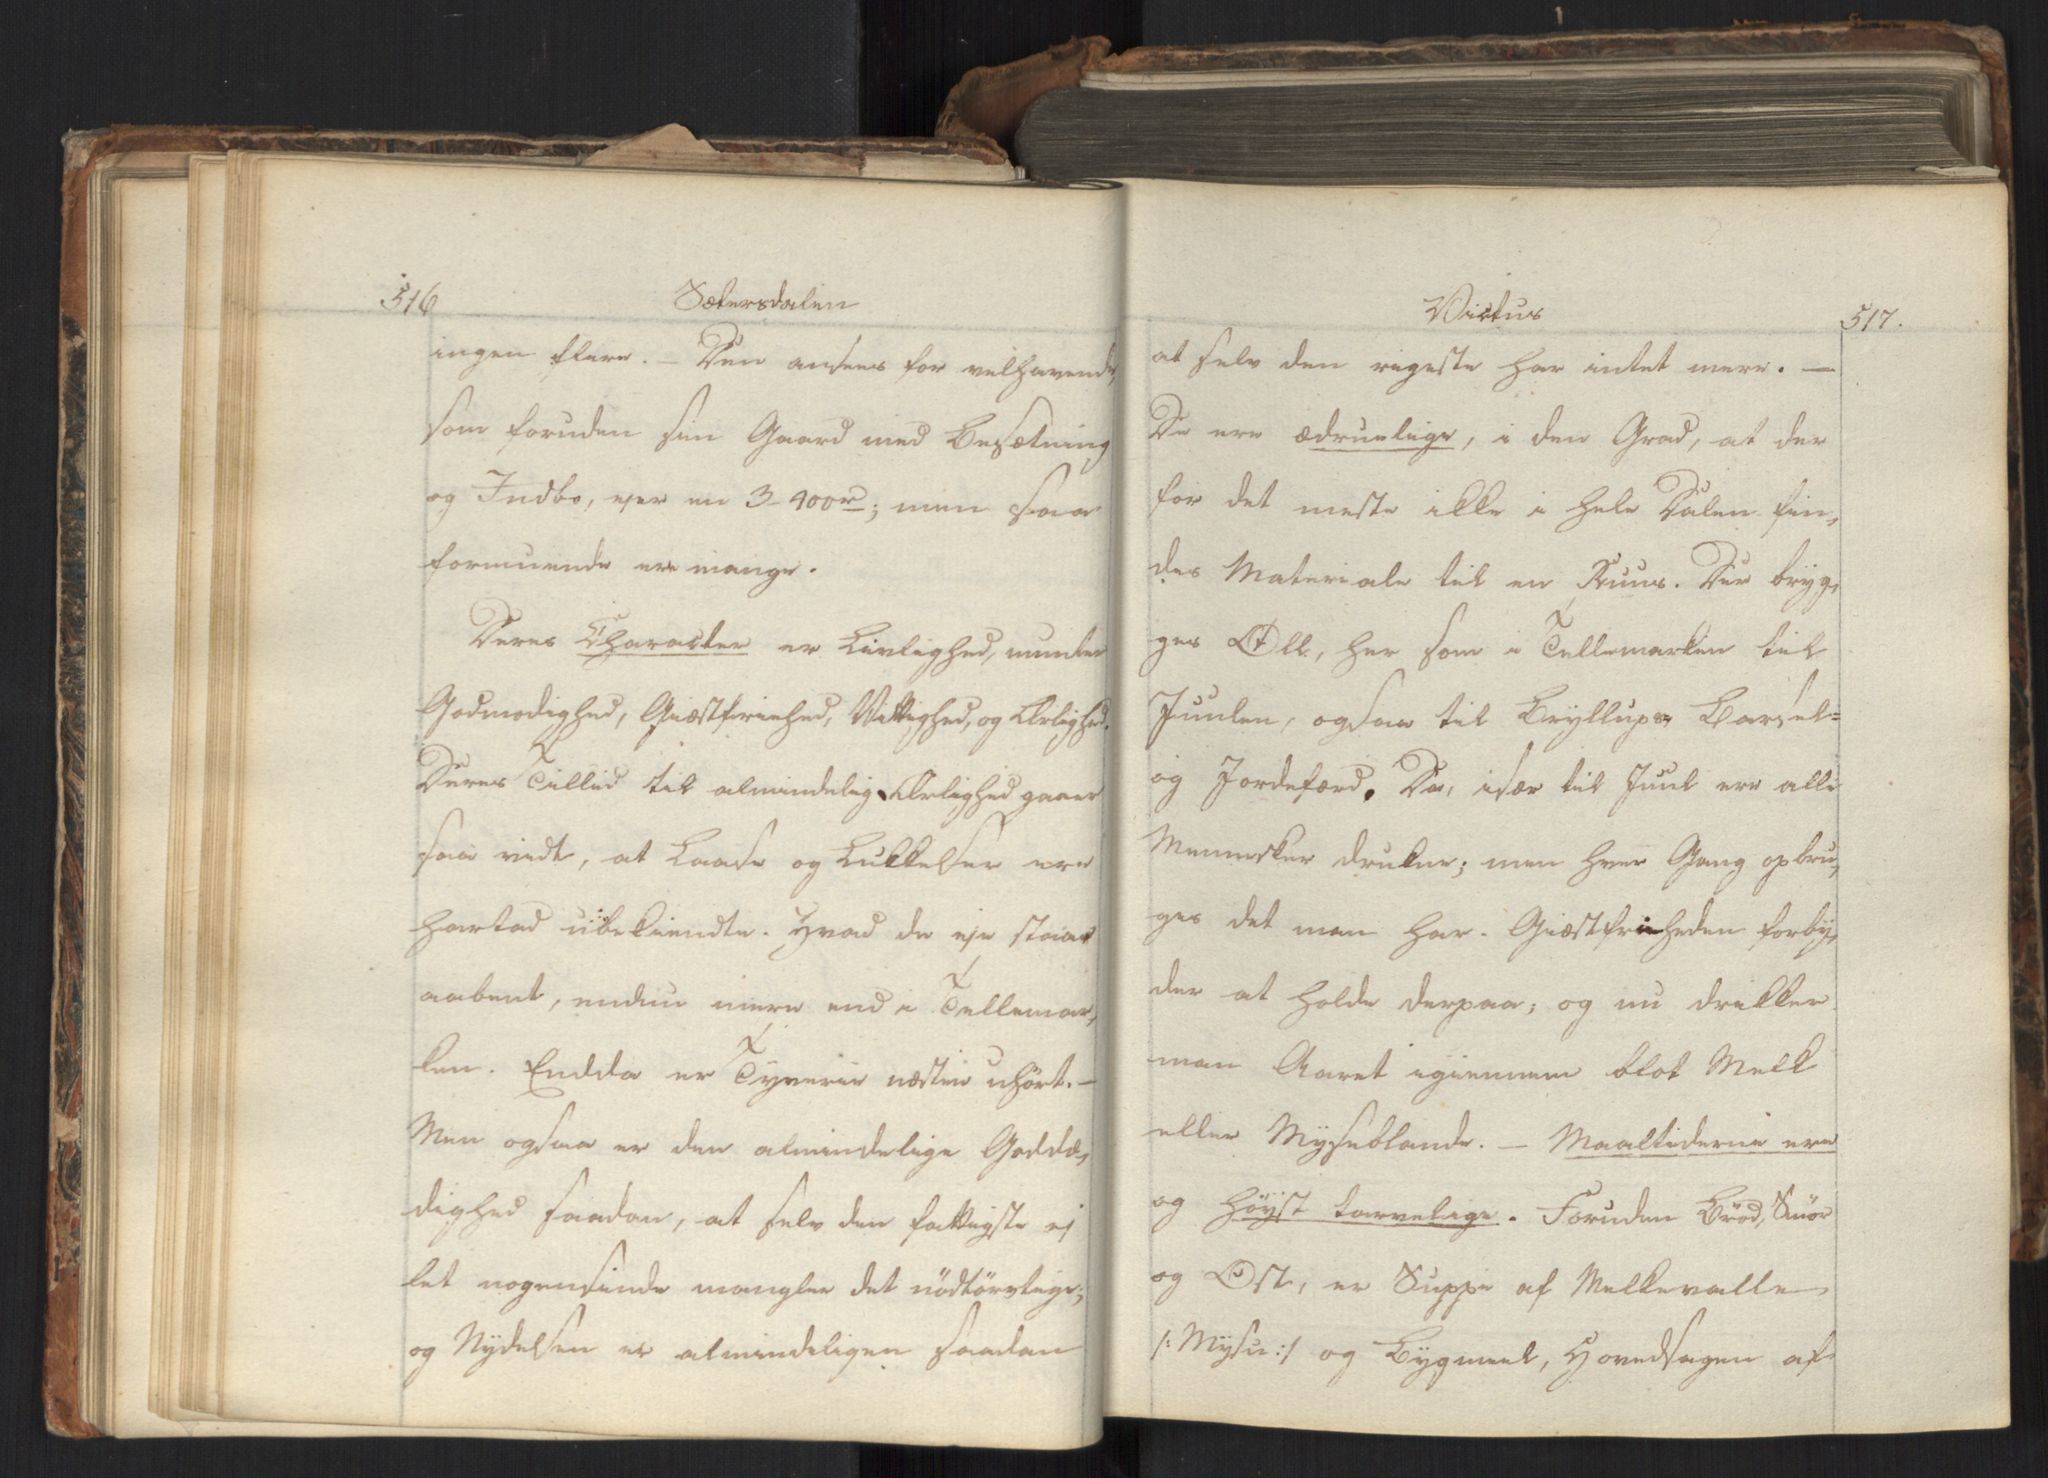 516
Sætersdalen
ingen flere. – Den ansees for velhavende,
som foruden sin Gaard med Besætning
og Indbo, ejer en 3-400rd; men saa
formuende ere mange.
Deres Character er Livlighed, munter
Godmodighed, Giæstfriehed, Vittighed, og Ærlighed.
Deres Tillid til almindelig Ærlighed gaaer
saa vidt, at Laase og Lukkelser ere
hartad ubekiendte. Hvad de eje staar
aabent, endnu mere end i Tellemar,
ken. Endda er Tyverie næsten uhört. –
Men ogsaa er den almindelige Godda,
dighed saadan, at selv den fattigste ej
let nogensinde mangler det nödtörvtige;
og Nydelsen er almindeligen saadan
Victus
517.
at selv den rigeste har intet mere. –
De ere ædruelige, i den Grad, at der
for det meste ikke i hele Dalen fin,
des Materiale til en Ruus. Der bryg,
ges Öll, her som i Tellemarken til
Juulen, ogsaa til Bryllups Barsel=
og Jordefærd. Da, især til Juul ere alle
Mennesker drukne; men hver Gang opbru,
ges det man har. Giæstfrieheden forby,
der at holde derpaa; og nu drikker
man Aaret igiennem blot Melk
eller Myseblande. – Maaltiderne ere
og höyst tarvelige. Foruden Bröd, Smör
og Ost, er Suppe af Melkevalle
/: Mysu :/ og Bygmeel, Hovedsagen af